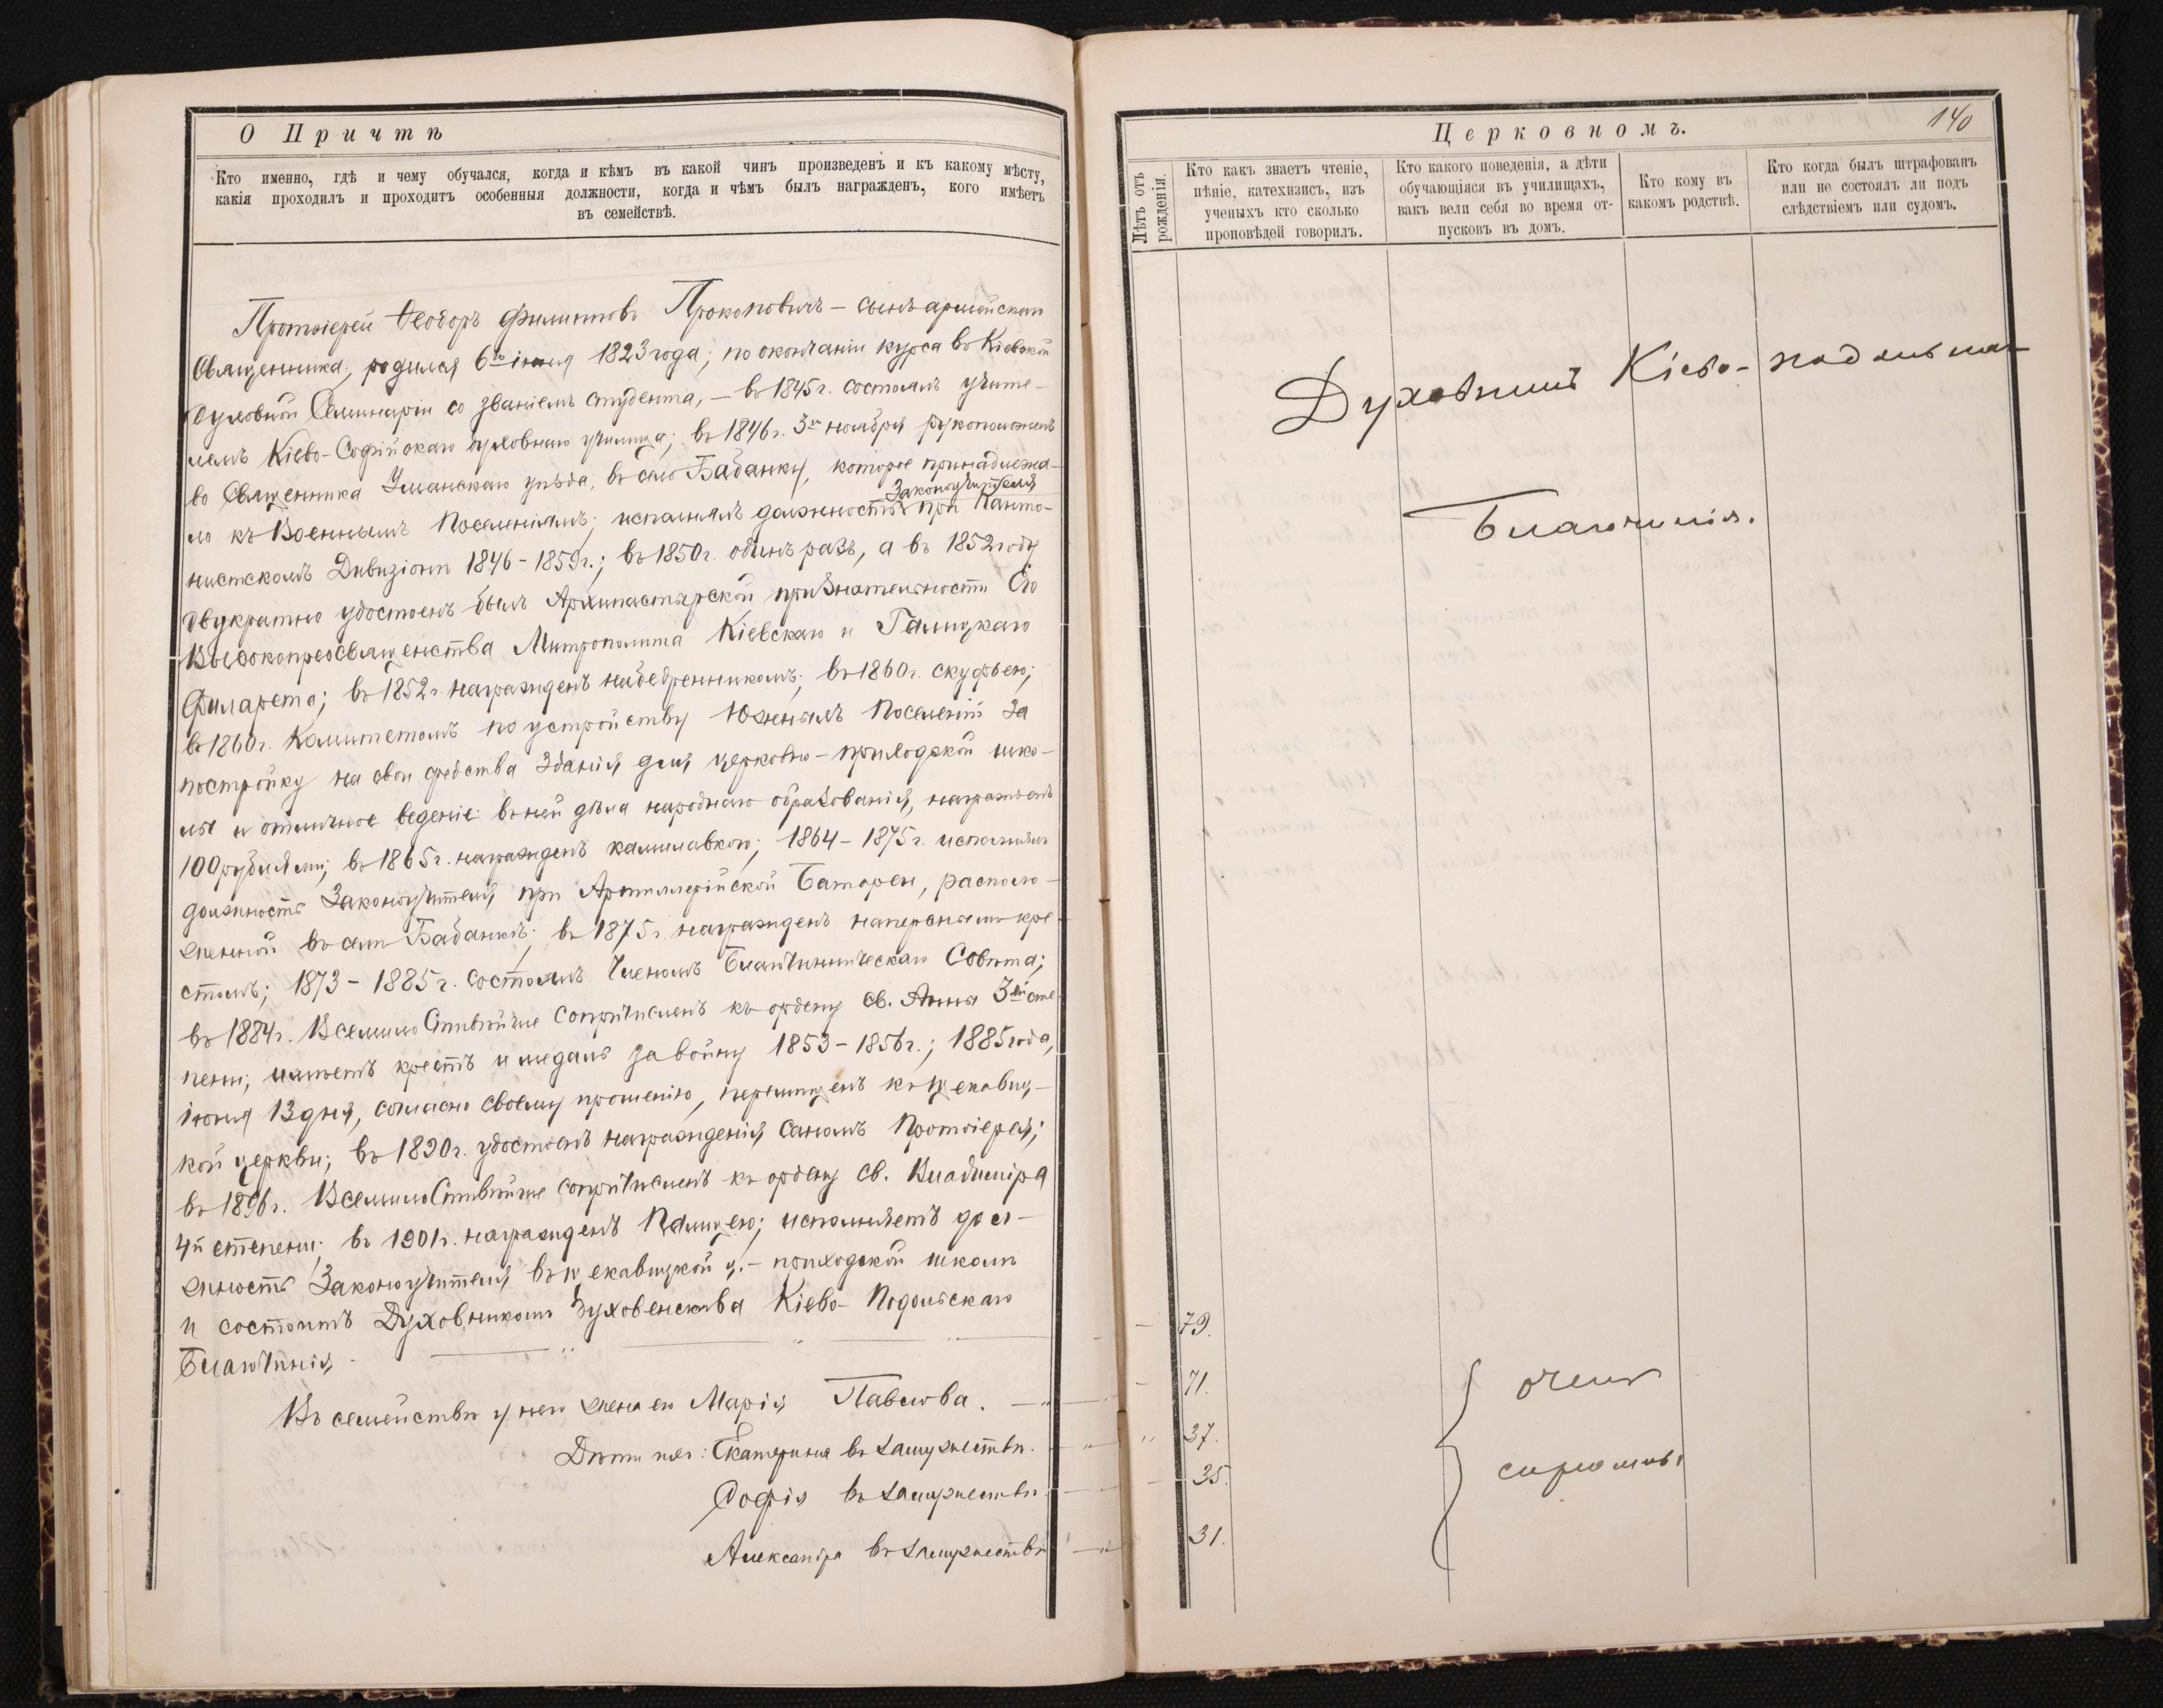 О Причтѣ
Кто именно, гдѣ и чему обучался, когда и кѣмъ въ какой чинъ произведенъ и къ какому мѣсту,
какія проходилъ и проходитъ особенныя должности, когда и чѣмъ былъ награжденъ, кого имѣетъ
въ семействѣ.
Протоіерей Ѳеодоръ Филипповъ Прокоповичъ – сынъ армейскаго
Священника, родился 6го 1823 года; по окончаніи курса въ Кіевской
Духовной Семинаріи со званіемъ студента, – въ 1845 г. состоялъ учите-
лемъ Кіево-Софійскаго духовнаго училища; въ 1846 г. 3го ноября рукоположенъ
во Священника Уманскаго уѣзда, въ село Бабанку, которое принадлежа-
ло къ Военнымъ Поселеніямъ; исполнялъ должность Законоучителя при Канто-
нистскомъ Дивизіонѣ 1846–1859 г.; въ 1850 г. одинъ разъ, а въ 1852 году
двукратно удостоенъ былъ Архипастырской признательности Его
Высокопреосвященства Митрополита Кіевскаго и Галицкаго
Филарета; въ 1852 г. награжденъ набедренникомъ; въ 1860 г. скуфьею;
въ 1860 г. Комитетомъ по устройству Южныхъ Поселеній за
постройку на свои средства зданія для церковно-приходской шко-
лы и отличное веденіе въ ней дѣла народнаго образованія, награжденъ
100 рублями; въ 1865 г. награжденъ камилавкою; 1864–1875 г. исполнялъ
должность Законоучителя при Артиллерійской Батареи, располо-
женной въ селѣ Бабанкѣ; въ 1875 г. награжденъ наперснымъ кре-
стомъ; 1873–1885 г. состоялъ Членомъ Благочинническаго Совѣта;
въ 1884 г. ВсемилоСтивѣйше сопричисленъ къ ордену св. Анны 3ей сте-
пени; имѣетъ крестъ и медаль за войну 1853–1856 г.; 1885 года,
іюня 13 дня, согласно своему прошенію, перемѣщенъ къ Щекавиц-
кой церкви; въ 1890 г. удостоенъ награжденія саномъ Протоіерея;
въ 1896 г. ВсемилоСтивѣйше сопричисленъ къ ордену св. Владиміра
4й степени; въ 1901 г. награжденъ Палицею; исполняетъ дол-
жность Законоучителя въ Щекавицкой ц.-приходской школѣ
и состоитъ Духовникомъ духовенства Кіево-Подольскаго
Благочинія.
Въ семействѣ у него жена его Марія Павлова.
Дѣти ихъ: Екатерина въ замужествѣ.
Софія въ замужествѣ.
Александра въ замужествѣ
Церковномъ.
140
Лѣтъ отъ рожденія.
Кто какъ знаетъ чтеніе,
пѣніе, катехизисъ, изъ
ученыхъ кто сколько
проповѣдей говорилъ.
Кто какого поведенія, а дѣти
обучающіяся въ училищахъ,
какъ вели себя во время от-
пусковъ въ домъ.
Кто кому въ
какомъ родствѣ.
Кто когда былъ штрафованъ
или не состоялъ ли подъ
слѣдствіемъ или судомъ.
Духовникъ Кіево-подольскаго
Благочинія.
79.
71.
37.
35.
31.
очень
скромны